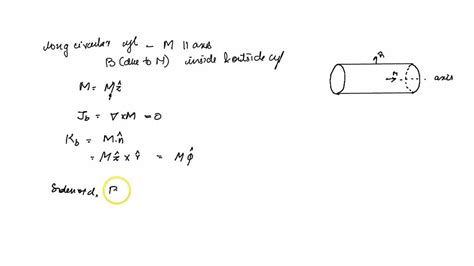 long circular cyl – M || axis
B (due to M) inside & outside cyl
M = M ẑ
J_b = ∇ × M = 0
K_b = M . n̂
= M ẑ × r̂ = M φ̂
Solenoid,
n̂
M
axis